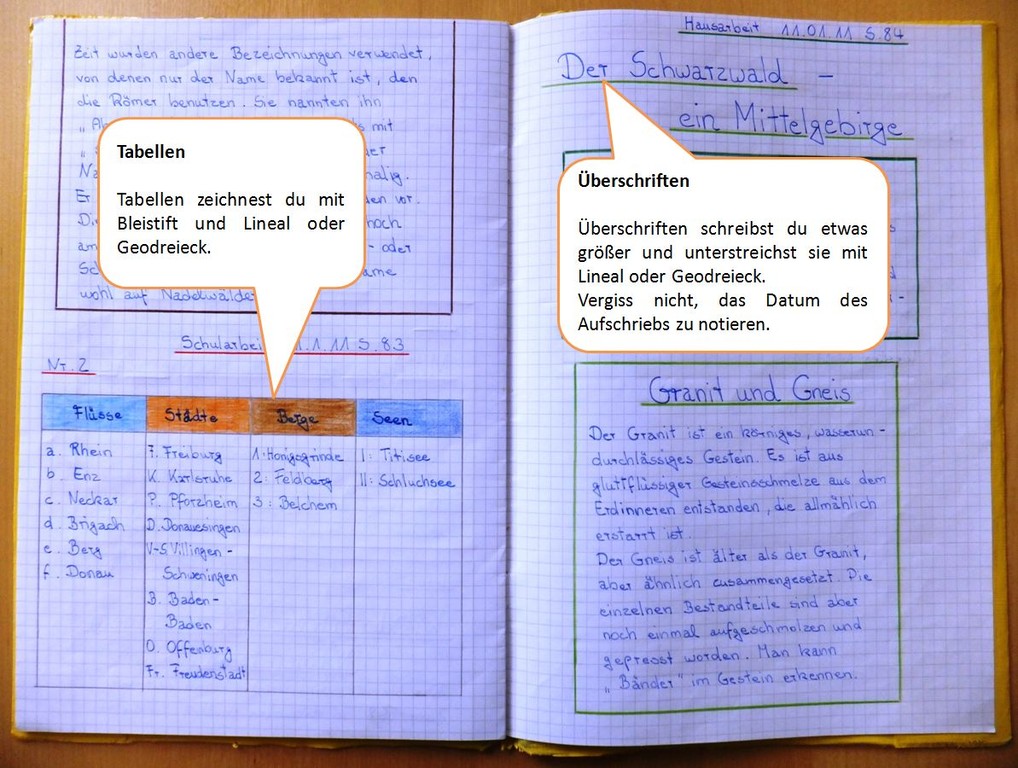 Zeit wurden andere Bezeichnungen verwendet,
von denen nur der Name bekannt ist, den
die Römer benutzen. Sie nannten ihn
mit
wohl auf
Tabellen
Tabellen zeichnest du mit
Bleistift und Lineal oder
Geodreieck.
Schularbeit 11.1.11 S.83
Nr. 2
Flüsse Städte Berge Seen
a. Rhein F. Freiburg 1. Honigsgrinde I: Titisee
b. Enz K. Karlsruhe 2: Feldberg II: Schluchsee
c. Neckar P. Pforzheim 3: Belchem
d. Brigach D. Donauesingen
e. Berg V-S. Villingen -
f. Donau Schweningen
B. Baden-
Baden
O. Offenburg
Fr. Freudenstadt
Hausarbeit 11.01.11 S.84
Der Schwarzwald –
ein Mittelgebirge
Überschriften
Überschriften schreibst du etwas
größer und unterstreichst sie mit
Lineal oder Geodreieck.
Vergiss nicht, das Datum des
Aufschriebs zu notieren.
Granit und Gneis
Der Granit ist ein körniges, wasserun-
durchlässiges Gestein. Es ist aus
glutflüssiger Gesteinsschmelze aus dem
Erdinneren entstanden, die allmählich
erstarrt ist.
Der Gneis ist älter als der Granit,
aber ähnlich zusammengesetzt. Die
einzelnen Bestandteile sind aber
noch einmal aufgeschmolzen und
gepresst worden. Man kann
„Bänder" im Gestein erkennen.